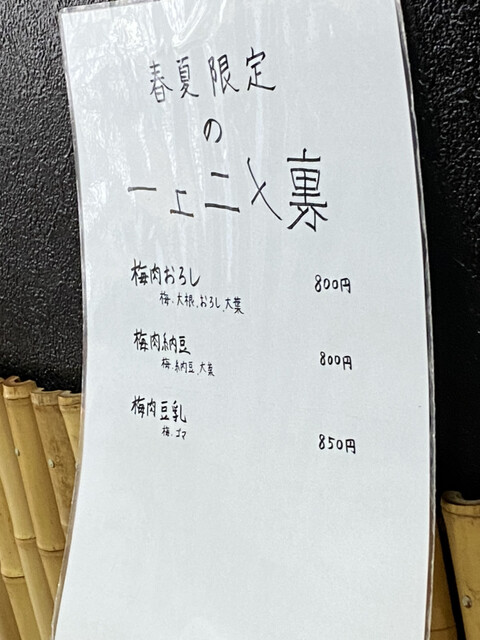 春夏限定
の
裏メニュー
梅肉おろし 800円
梅、大根、おろし、大葉
梅肉納豆 800円
梅、納豆、大葉
梅肉豆乳 850円
梅、ゴマ